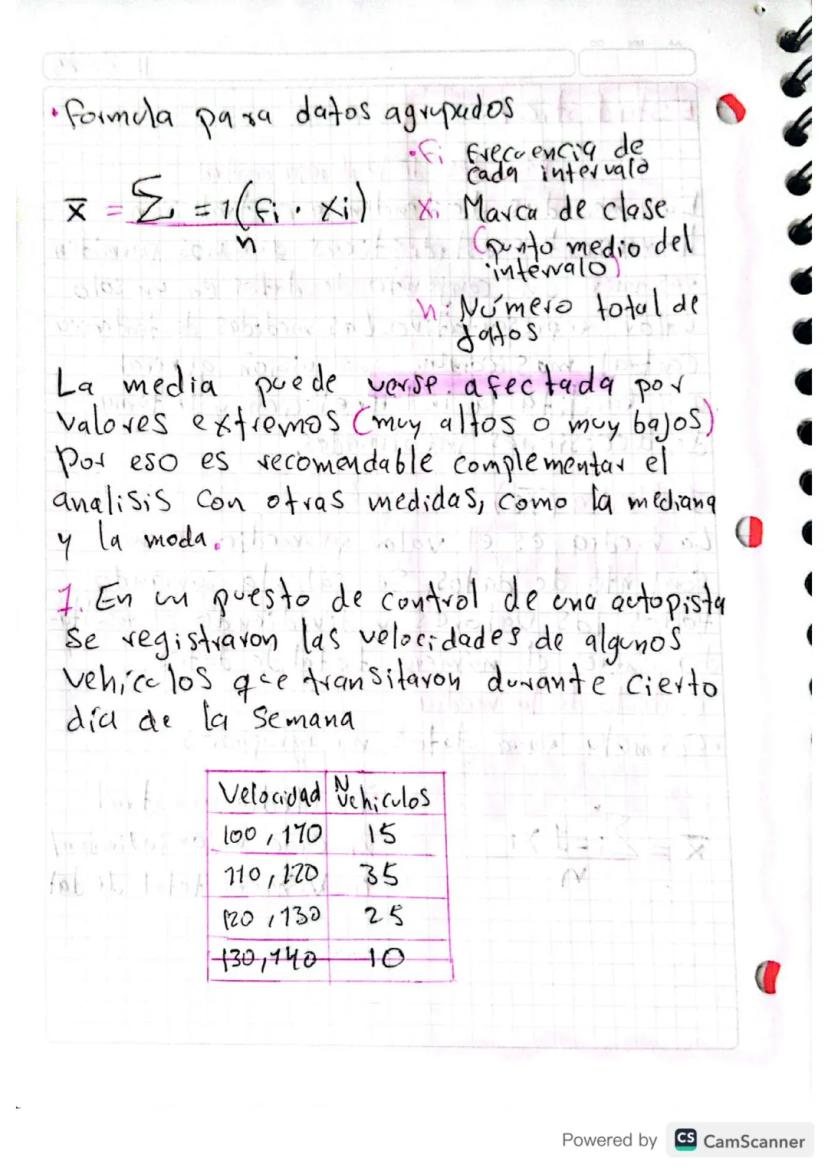 • Formula para datos agrupados
• fi Frecuencia de cada intervalo
x̄ = Σ = 1(fi · xi)
n
xi Marca de clase
(punto medio del
intervalo)
n: Número total de
datos
La media puede verse afectada por
valores extremos (muy altos o muy bajos)
Por eso es recomendable complementar el
analisis con otras medidas, como la mediana
y la moda.
1. En un puesto de control de una autopista
se registraron las velocidades de algunos
vehiculos que transitaron durante cierto
día de la semana
Velocidad N vehiculos
100, 110 15
110, 120 35
120, 130 25
130, 140 10
Powered by CS CamScanner